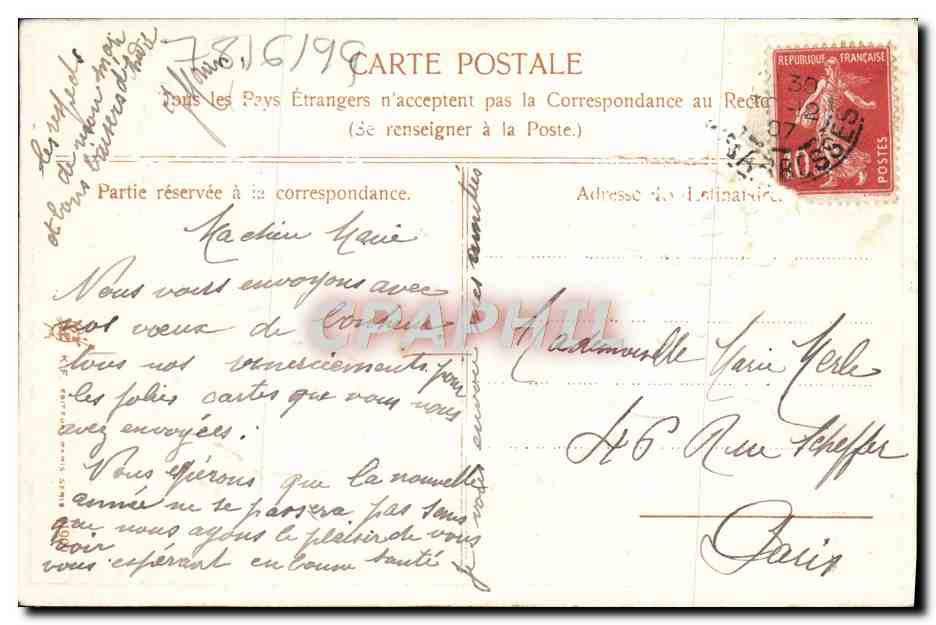 78/6/99
CARTE POSTALE
Tous les Pays Étrangers n'acceptent pas la Correspondance au Recto
(Se renseigner à la Poste.)
REPUBLIQUE FRANÇAISE
10
POSTES
30
12
07
Partie réservée à la correspondance.
Adresse du Destinataire.
Ma chère Marie
Nous vous envoyons avec
nos vœux de bonheur
tous nos remerciements pour
les jolies cartes que vous nous
avez envoyées.
Nous espérons que la nouvelle
année ne se passera pas sans
que nous ayons le plaisir de vous
voir
vous espérant en bonne santé
je vous envoie mes amitiés
les respects
de
et bons baisers d'
Mademoiselle Marie Merle
46 Rue Scheffer
Paris
CPAPHIL
EDITEUR PARIS SERIE